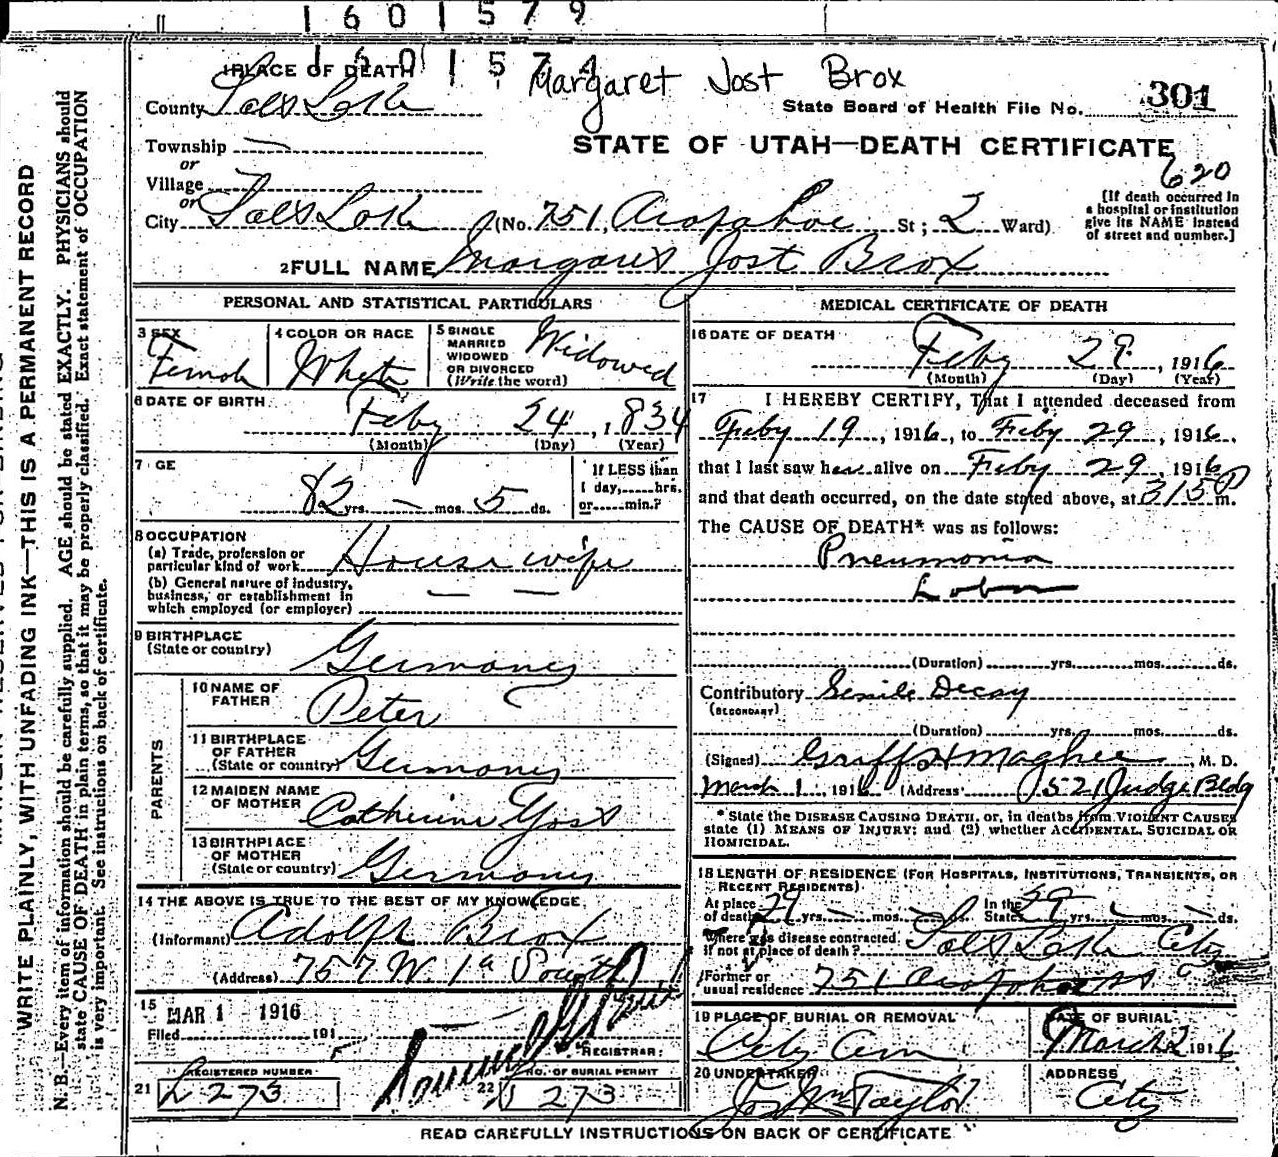 1601579
1601574
Margaret Jost Brox
1 PLACE OF DEATH
County Salt Lake
State Board of Health File No. 301
Township —
STATE OF UTAH—DEATH CERTIFICATE
or
Village
620
or
City Salt Lake (No. 751, Arapahoe St; 2 Ward)
[If death occurred in
a hospital or institution
give its NAME instead
of street and number.]
2 FULL NAME Margaret Jost Brox
PERSONAL AND STATISTICAL PARTICULARS
3 SEX
Female
4 COLOR OR RACE
White
5 SINGLE
MARRIED
WIDOWED
OR DIVORCED
(Write the word)
Widowed
6 DATE OF BIRTH
Feby 24, 1834
(Month) (Day) (Year)
7 GE
82 yrs. — mos. 5 ds.
If LESS than
1 day,......hrs.
or......min.?
8 OCCUPATION
(a) Trade, profession or
particular kind of work House wife
(b) General nature of industry,
business, or establishment in
which employed (or employer) — —
9 BIRTHPLACE
(State or country) Germany
PARENTS
10 NAME OF
FATHER Peter
11 BIRTHPLACE
OF FATHER
(State or country) Germany
12 MAIDEN NAME
OF MOTHER Catherine Yost
13 BIRTHPLACE
OF MOTHER
(State or country) Germany
14 THE ABOVE IS TRUE TO THE BEST OF MY KNOWLEDGE
(Informant) Adolph Brox
(Address) 757 W. 1st South
15 MAR 1 1916
Filed 191
REGISTRAR
REGISTERED NUMBER
21 L 273
NO. OF BURIAL PERMIT
22 273
MEDICAL CERTIFICATE OF DEATH
16 DATE OF DEATH
Feby 29, 1916
(Month) (Day) (Year)
17 I HEREBY CERTIFY, That I attended deceased from
Feby 19, 1916, to Feby 29, 1916,
that I last saw her alive on Feby 29, 1916
and that death occurred, on the date stated above, at 315 P m.
The CAUSE OF DEATH* was as follows:
Pneumonia
Lobar
(Duration) yrs. mos. ds.
Contributory Senile Decay
(SECONDARY)
(Duration) yrs. mos. ds.
(Signed) Griff H Maghee, M. D.
March 1, 1916 (Address) 521 Judge Bldg
*State the DISEASE CAUSING DEATH, or, in deaths from VIOLENT CAUSES
state (1) MEANS OF INJURY; and (2) whether ACCIDENTAL, SUICIDAL OR
HOMICIDAL.
18 LENGTH OF RESIDENCE (FOR HOSPITALS, INSTITUTIONS, TRANSIENTS, OR
RECENT RESIDENTS)
At place
of death 29 yrs. — mos. — ds. In the
State 29 yrs. — mos. — ds.
Where was disease contracted,
if not at place of death? Salt Lake City
Former or
usual residence 751 Arapahoe St
19 PLACE OF BURIAL OR REMOVAL
City Cem
DATE OF BURIAL
March 2 1916
20 UNDERTAKER
Jos Wm Taylor
ADDRESS
City
READ CAREFULLY INSTRUCTIONS ON BACK OF CERTIFICATE
WRITE PLAINLY, WITH UNFADING INK—THIS IS A PERMANENT RECORD
N. B.—Every item of information should be carefully supplied. AGE should be stated EXACTLY. PHYSICIANS should
state CAUSE OF DEATH in plain terms, so that it may be properly classified. Exact statement of OCCUPATION
is very important. See instructions on back of certificate.